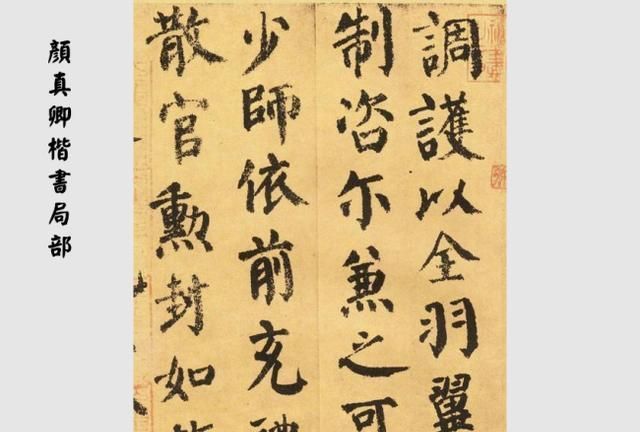 調護以全羽翼
制咨尓兼之可
少師依前充禮
散官勲封如故
顔真卿楷書局部